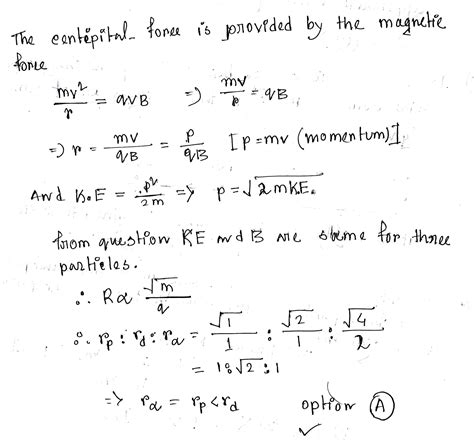 The centripital force is provided by the magnetic
force
mv²/r = qvB ⇒ mv/r = qB
⇒ r = mv/qB = P/qB [p = mv (momentum)]
And K.E = p²/2m ⇒ p = √2mKE.
from question KE and B are same for three
particles.
∴ R α √m/q
∴ rp : rd : rα = √1/1 : √2/1 : √4/2
= 1:√2:1
⇒ rα = rp < rd option (A) ✓